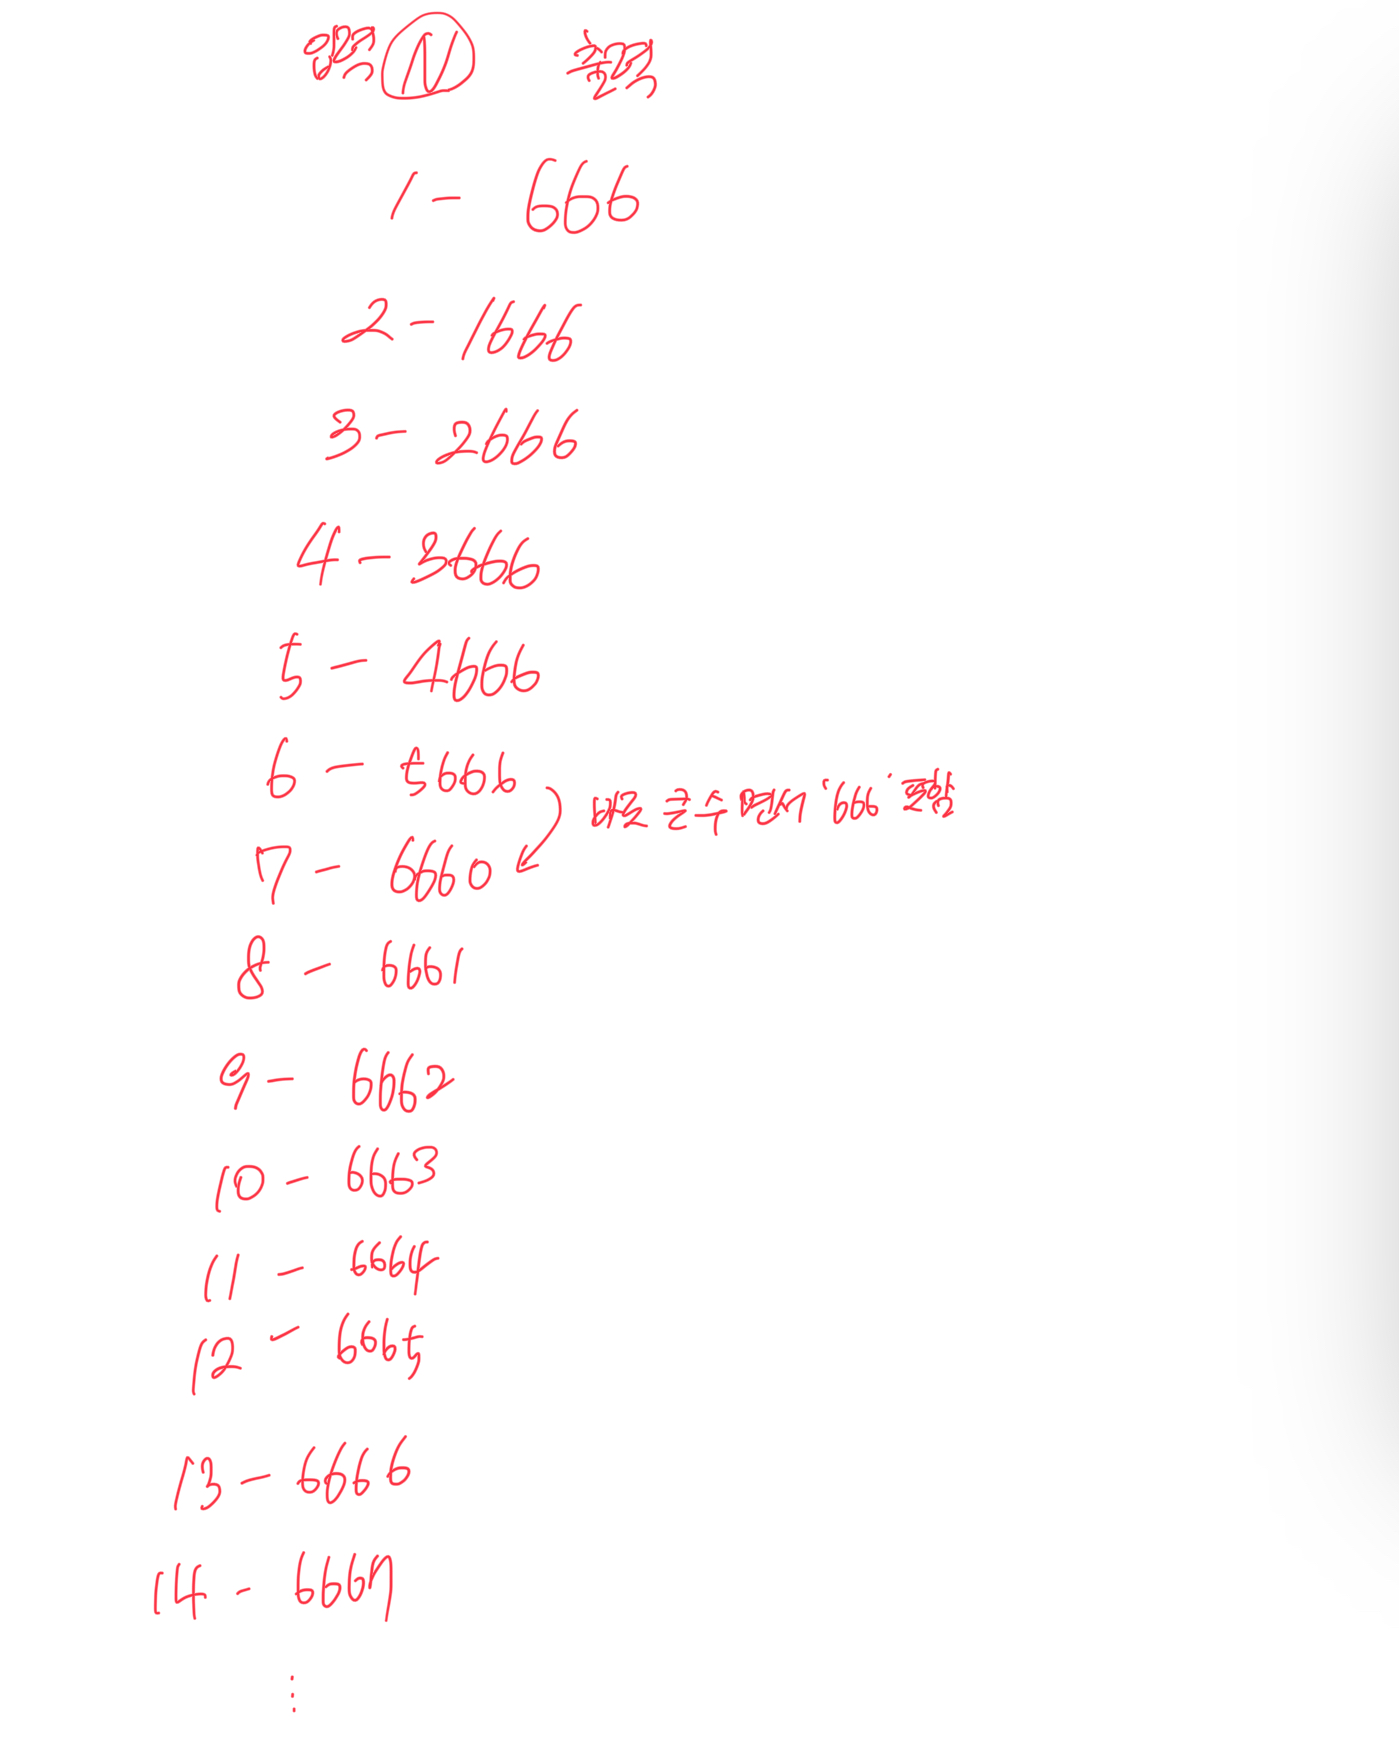 입력 N 출력
1 - 666
2 - 1666
3 - 2666
4 - 3666
5 - 4666
6 - 5666
바로 큰수 면서 '666' 포함
7 - 6660
8 - 6661
9 - 6662
10 - 6663
11 - 6664
12 - 6665
13 - 6666
14 - 6667
⋮